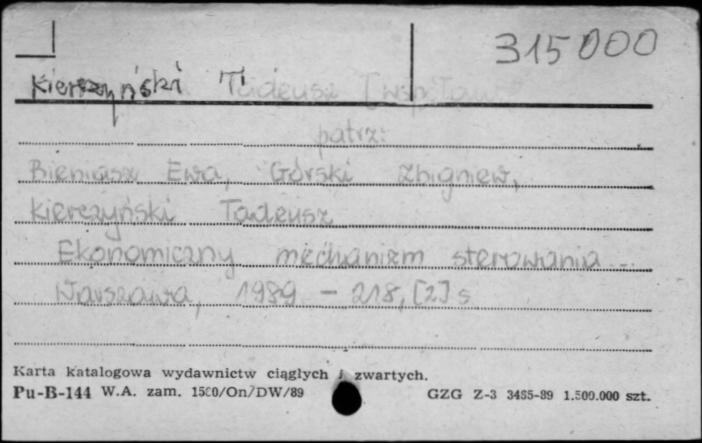 315000
Kierczyński Tadeusz [współaut
patrz:
Bieniasz Ewa, Górski Zbigniew,
Kierczyński Tadeusz
Ekonomiczny mechanizm sterowania...
Warszawa, 1989 - 218, [2] s
Karta katalogowa wydawnictw ciągłych i zwartych.
Pu-B-144 W.A. zam. 1500/On/DW/89 GZG Z-3 3485-89 1.500.000 szt.